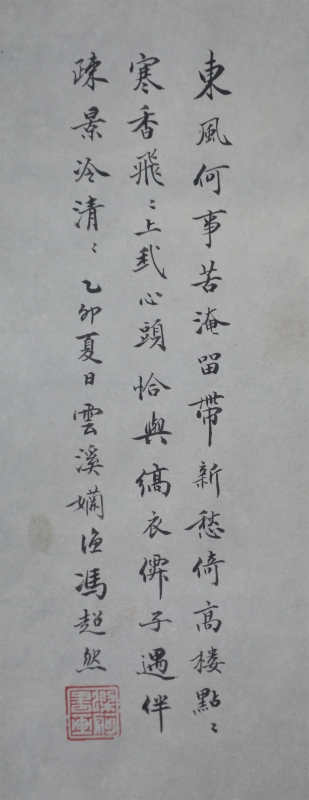 東風何事苦淹留帶新愁倚高楼點〻
寒香飛〻上我心頭恰與縞衣僊子遇伴
疎景泠清〻乙卯夏日雲溪嬾漁馮超然